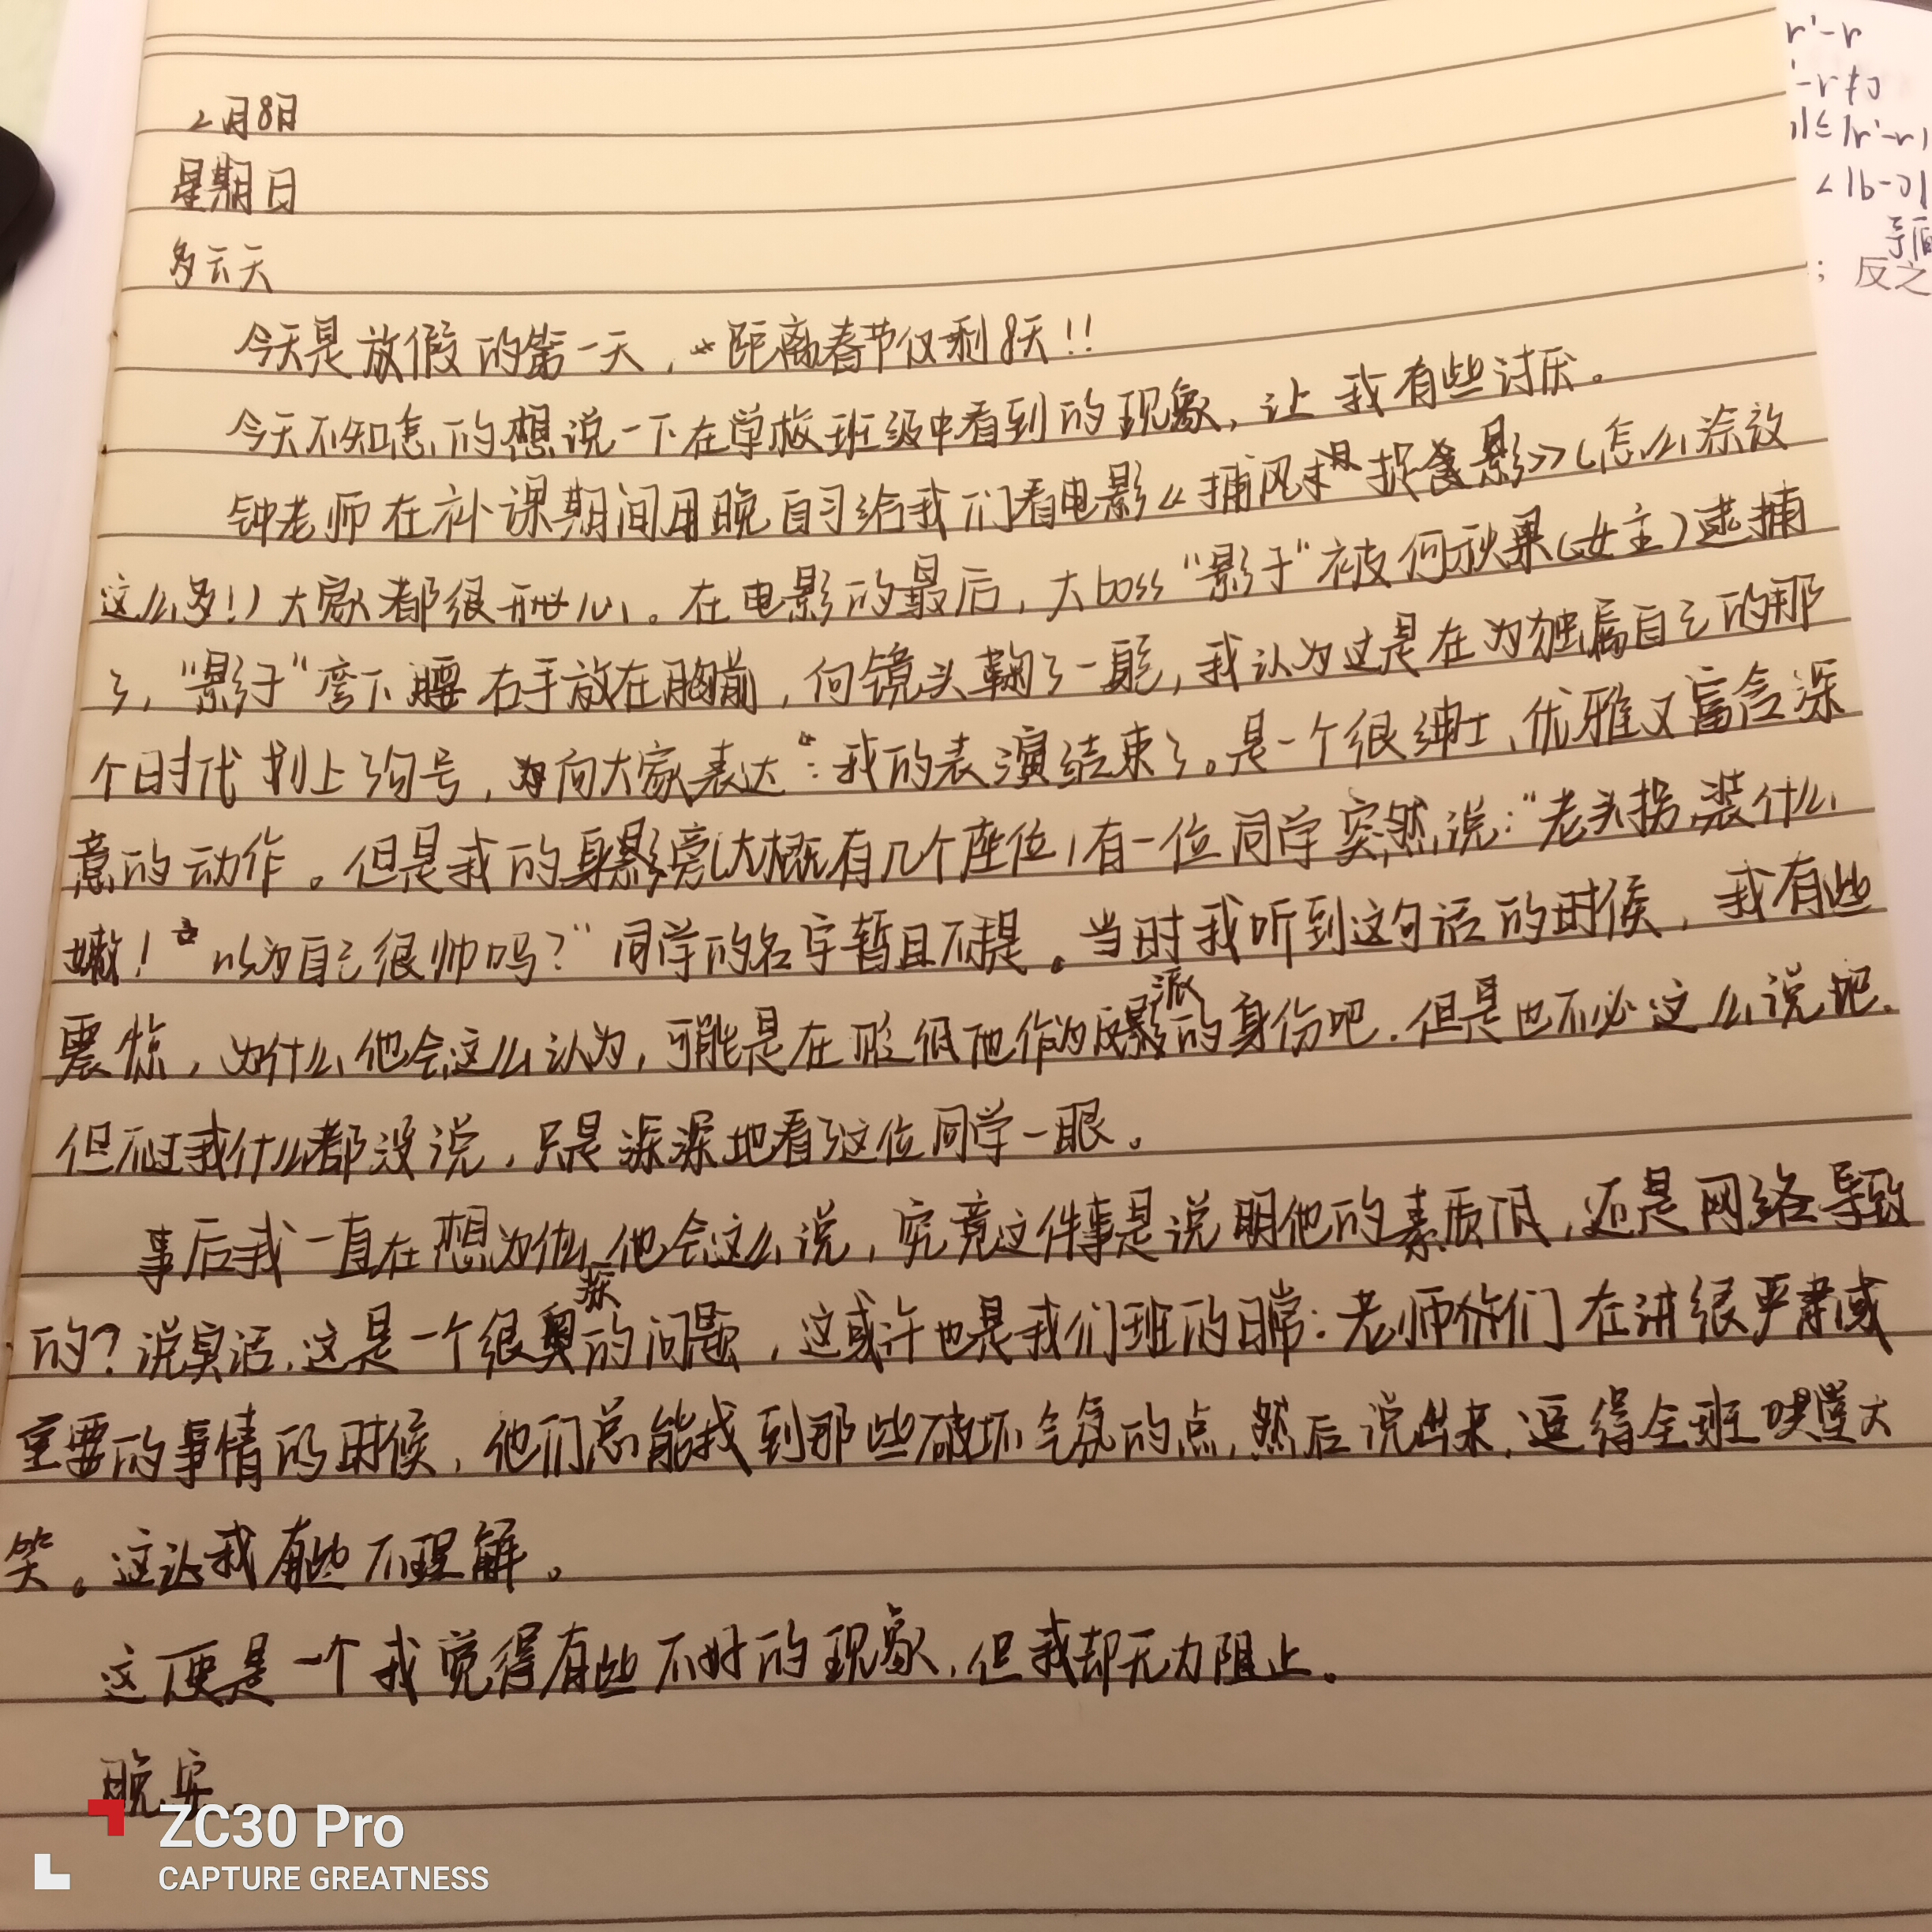 2月8日
星期日
多云天
今天是放假的第一天，距离春节仅剩8天!!
今天不知怎的想说一下在学校班级中看到的现象，让我有些讨厌。
钟老师在补课期间用晚自习给我们看电影《捕风捉影》(怎么涂改
这么多!)大家都很开心。在电影的最后，大boss“影子”被何秋果(女主)逮捕
了，“影子”弯下腰右手放在胸前，向镜头鞠了一躬，我认为这是在为独属自己的那
个时代划上了句号，向大家表达“：我的表演结束了。是一个很绅士、优雅又富含深
意的动作。但是我的身影旁(大概有几个座位)有一位同学突然说：“老头拐，装什么
嫩！以为自己很帅吗？”同学的名字暂且不提。当时我听到这句话的时候，我有些
震惊，为什么他会这么认为，可能是在贬低他作为反派的身份吧．但是也不必这么说吧．
但不过我什么都没说，只是深深地看了这位同学一眼。
事后我一直在想为什么他会这么说，究竟这件事是说明他的素质低，还是网络导致
的？说实话，这是一个很深奥的问题，这或许也是我们班的日常：老师你们在讲很严肃或
重要的事情的时候，他们总能找到那些破坏气氛的点，然后说出来，逗得全班哄堂大
笑。这让我有些不理解。
这便是一个我觉得有些不好的现象，但我却无力阻止。
晚安.
r'-r
'-r≠0
)|≤|r'-r|
<|b-0|
矛盾
；反之
ZC30 Pro
CAPTURE GREATNESS